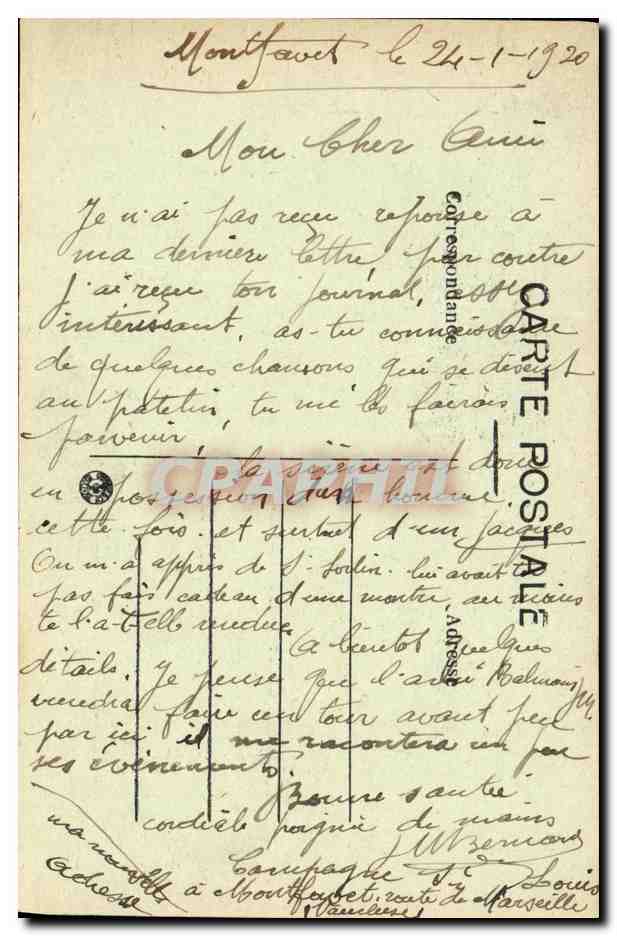 Montfavet le 24-1-1920
Mon Cher Ami
Je n'ai pas reçu reponse à
ma derniere lettre, par contre
j'ai reçu ton journal, assez
intérissant, as-tu connaissance
de quelques chansons qui se disent
au patelin, tu me les fairais
parvenir,
la sirène est donc
en possession d'un homme
cette fois et surtout d'un Jacques
On m'a appris de St Sorlin lui avait tu
pas fais cadeau d'une montre, au moins
te l'a-t-elle rendue
A bientot quelques
détails. Je pense que l'ami
viendra faire un tour avant peu
par ici il me racontera un peu
ses événements.
Bonne santé
cordiale poignée de mains
Bernard
ma nouvelle
adresse
Campagne St Louis
à Montfavet route de Marseille
(Vaucluse)
CARTE POSTALE
Correspondance
Adresse
CPAPHIL